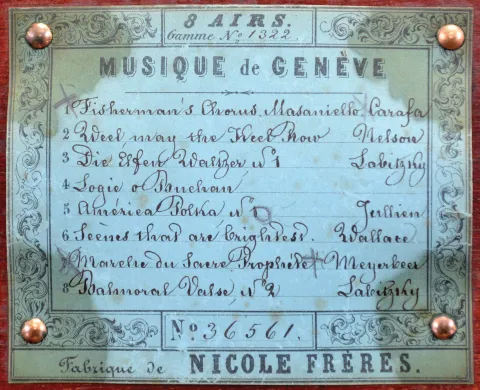 8 AIRS.
Gamme No. 1322
MUSIQUE de GENÈVE
1 Fisherman's Chorus, Masaniello Carafa
2 Weel may the Keel Row Nelson
3 Die Elfen Waltzer No 1 Labitzky
4 Logie o Buchan
5 América Polka No Jullien
6 Scènes that are brightest. Wallace
Marche du Sacre Prophète Meyerbeer
8 Balmoral Valse, No 2 Labitzky
No. 36561.
Fabrique de NICOLE FRÈRES.